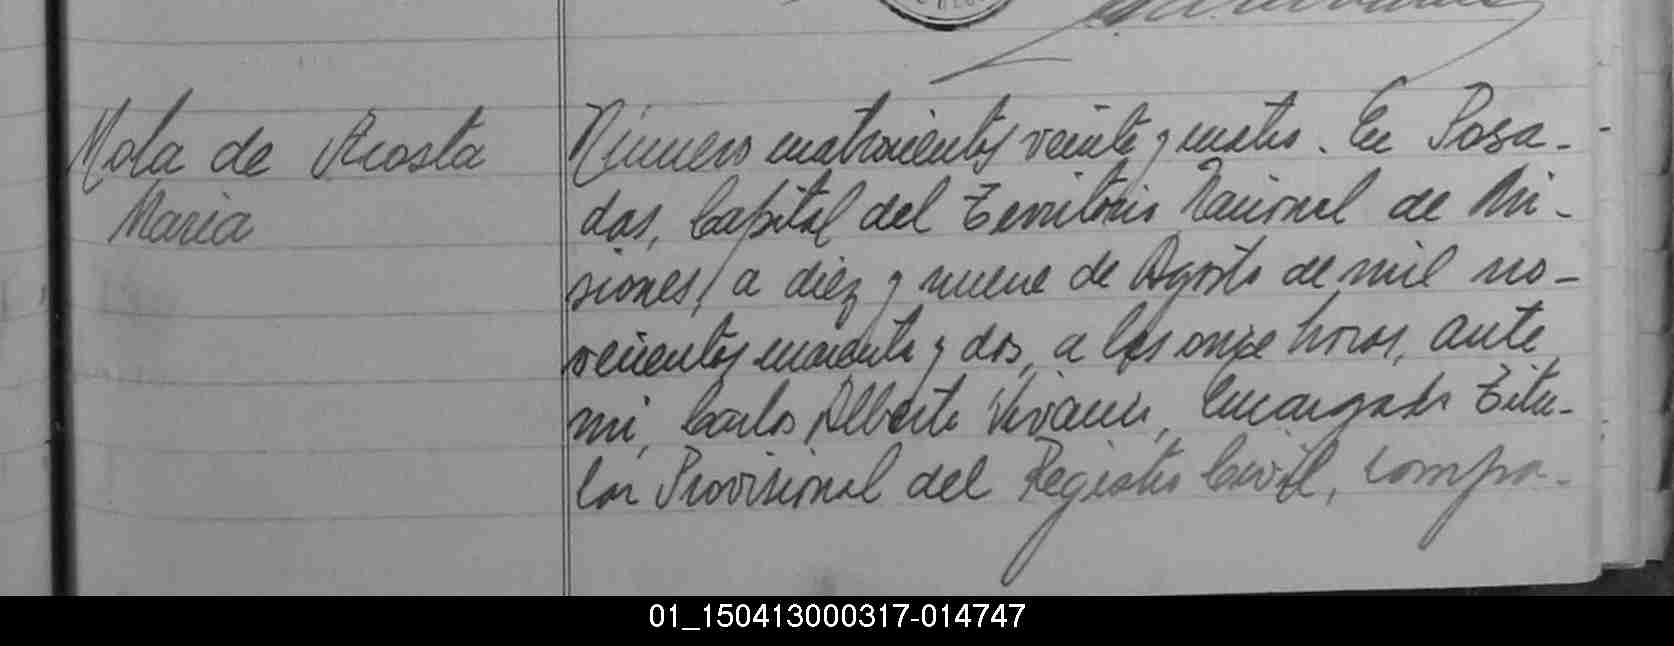 Mola de Acosta
Maria
Número cuatrocientos veinte y cuatro. En Posa-
das, Capital del Territorio Nacional de Mi-
siones, a diez y nueve de Agosto de mil no-
vecientos cuarenta y dos, a las once horas, ante
mi, Carlos Alberto Vivanco, Encargado Titu-
lar Provisional del Registro Civil, compa-
01_150413000317-014747